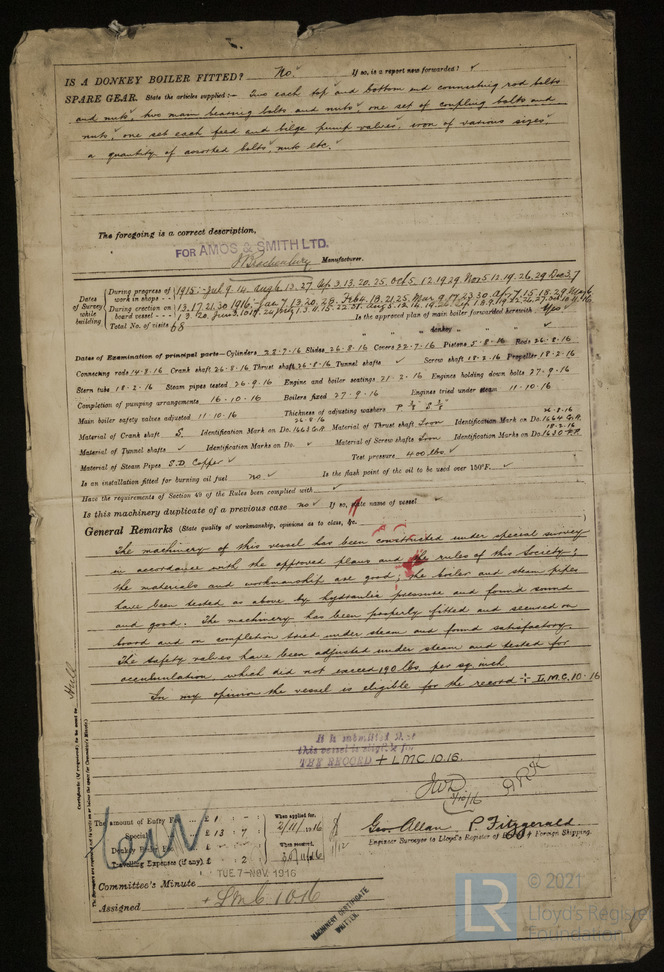 IS A DONKEY BOILER FITTED? No. If so, is a report now forwarded? ✓
SPARE GEAR. State the articles supplied:— Two each top and bottom end connecting rod bolts
and nuts, two main bearing bolts and nuts, one set of coupling bolts and
nuts, one set each feed and bilge pump valves, iron of various sizes,
a quantity of assorted bolts, nuts etc.
The foregoing is a correct description,
FOR AMOS & SMITH LTD.
Manufacturer.
Dates of Survey while building
During progress of work in shops - - 1915:- Jul 9. 14. Aug 6. 13. 27. Sep 3. 13. 20. 25. Oct 5. 12. 19. 29. Nov 5. 12. 19. 26. 29. Dec 3. 7
During erection on board vessel - - - 13. 17. 21. 30 1916:- Jan 7. 13. 20. 28. Feb 4. 18. 21. 25. Mar 9. 17.
Total No. of visits 68
Is the approved plan of main boiler forwarded herewith
" " " donkey " " "
Dates of Examination of principal parts—Cylinders 28-7-16 Slides 26-8-16 Covers 22-7-16 Pistons 5-8-16 Rods 26-8-16
Connecting rods 14-8-16 Crank shaft 26-8-16 Thrust shaft 26-8-16 Tunnel shafts ✓ Screw shaft 18-2-16 Propeller 18-2-16
Stern tube 18-2-16 Steam pipes tested 26-9-16 Engine and boiler seatings 21-2-16 Engines holding down bolts 27-9-16
Completion of pumping arrangements 16-10-16 Boilers fixed 27-9-16 Engines tried under steam 11-10-16
Main boiler safety valves adjusted 11-10-16 Thickness of adjusting washers P 3/8 S 3/8
Material of Crank shaft S. Identification Mark on Do. 1663 G.A. 26-8-16 Material of Thrust shaft Iron Identification Mark on Do. 1664 G.A. 26-8-16
Material of Tunnel shafts ✓ Identification Marks on Do. ✓ Material of Screw shafts Iron Identification Marks on Do. 1630 18-2-16
Material of Steam Pipes S.D. Copper ✓ Test pressure 400 lbs. ✓
Is an installation fitted for burning oil fuel no ✓ Is the flash point of the oil to be used over 150°F. ✓
Have the requirements of Section 49 of the Rules been complied with ✓
Is this machinery duplicate of a previous case no ✓ If so, state name of vessel ✓
General Remarks (State quality of workmanship, opinions as to class, &c.
The machinery of this vessel has been constructed under special survey
in accordance with the approved plans and the rules of this Society;
the materials and workmanship are good; the boiler and steam pipes
have been tested as above by hydraulic pressure and found sound
and good. The machinery has been properly fitted and secured on
board and on completion tried under steam and found satisfactory.
The safety valves have been adjusted under steam and tested for
accumulation which did not exceed 190 lbs per sq inch
In my opinion the vessel is eligible for the record + L.M.C. 10-16
Hull
It is submitted that
this vessel is eligible for
THE RECORD + LMC 10.16.
The amount of Entry Fee £ 1
Special £ 13 : 7
Donkey
Travelling Expenses (if any) £ : 2
When applied for,
2/11/1916
When received,
30/11/16
Geo. Allan P. Fitzgerald.
Engineer Surveyor to Lloyd's Register of British & Foreign Shipping.
Committee's Minute TUE. 7-NOV. 1916
Assigned + LMC 10.16
MACHINERY CERTIFICATE
WRITTEN.
LR
© 2021
Lloyd's Register
Foundation